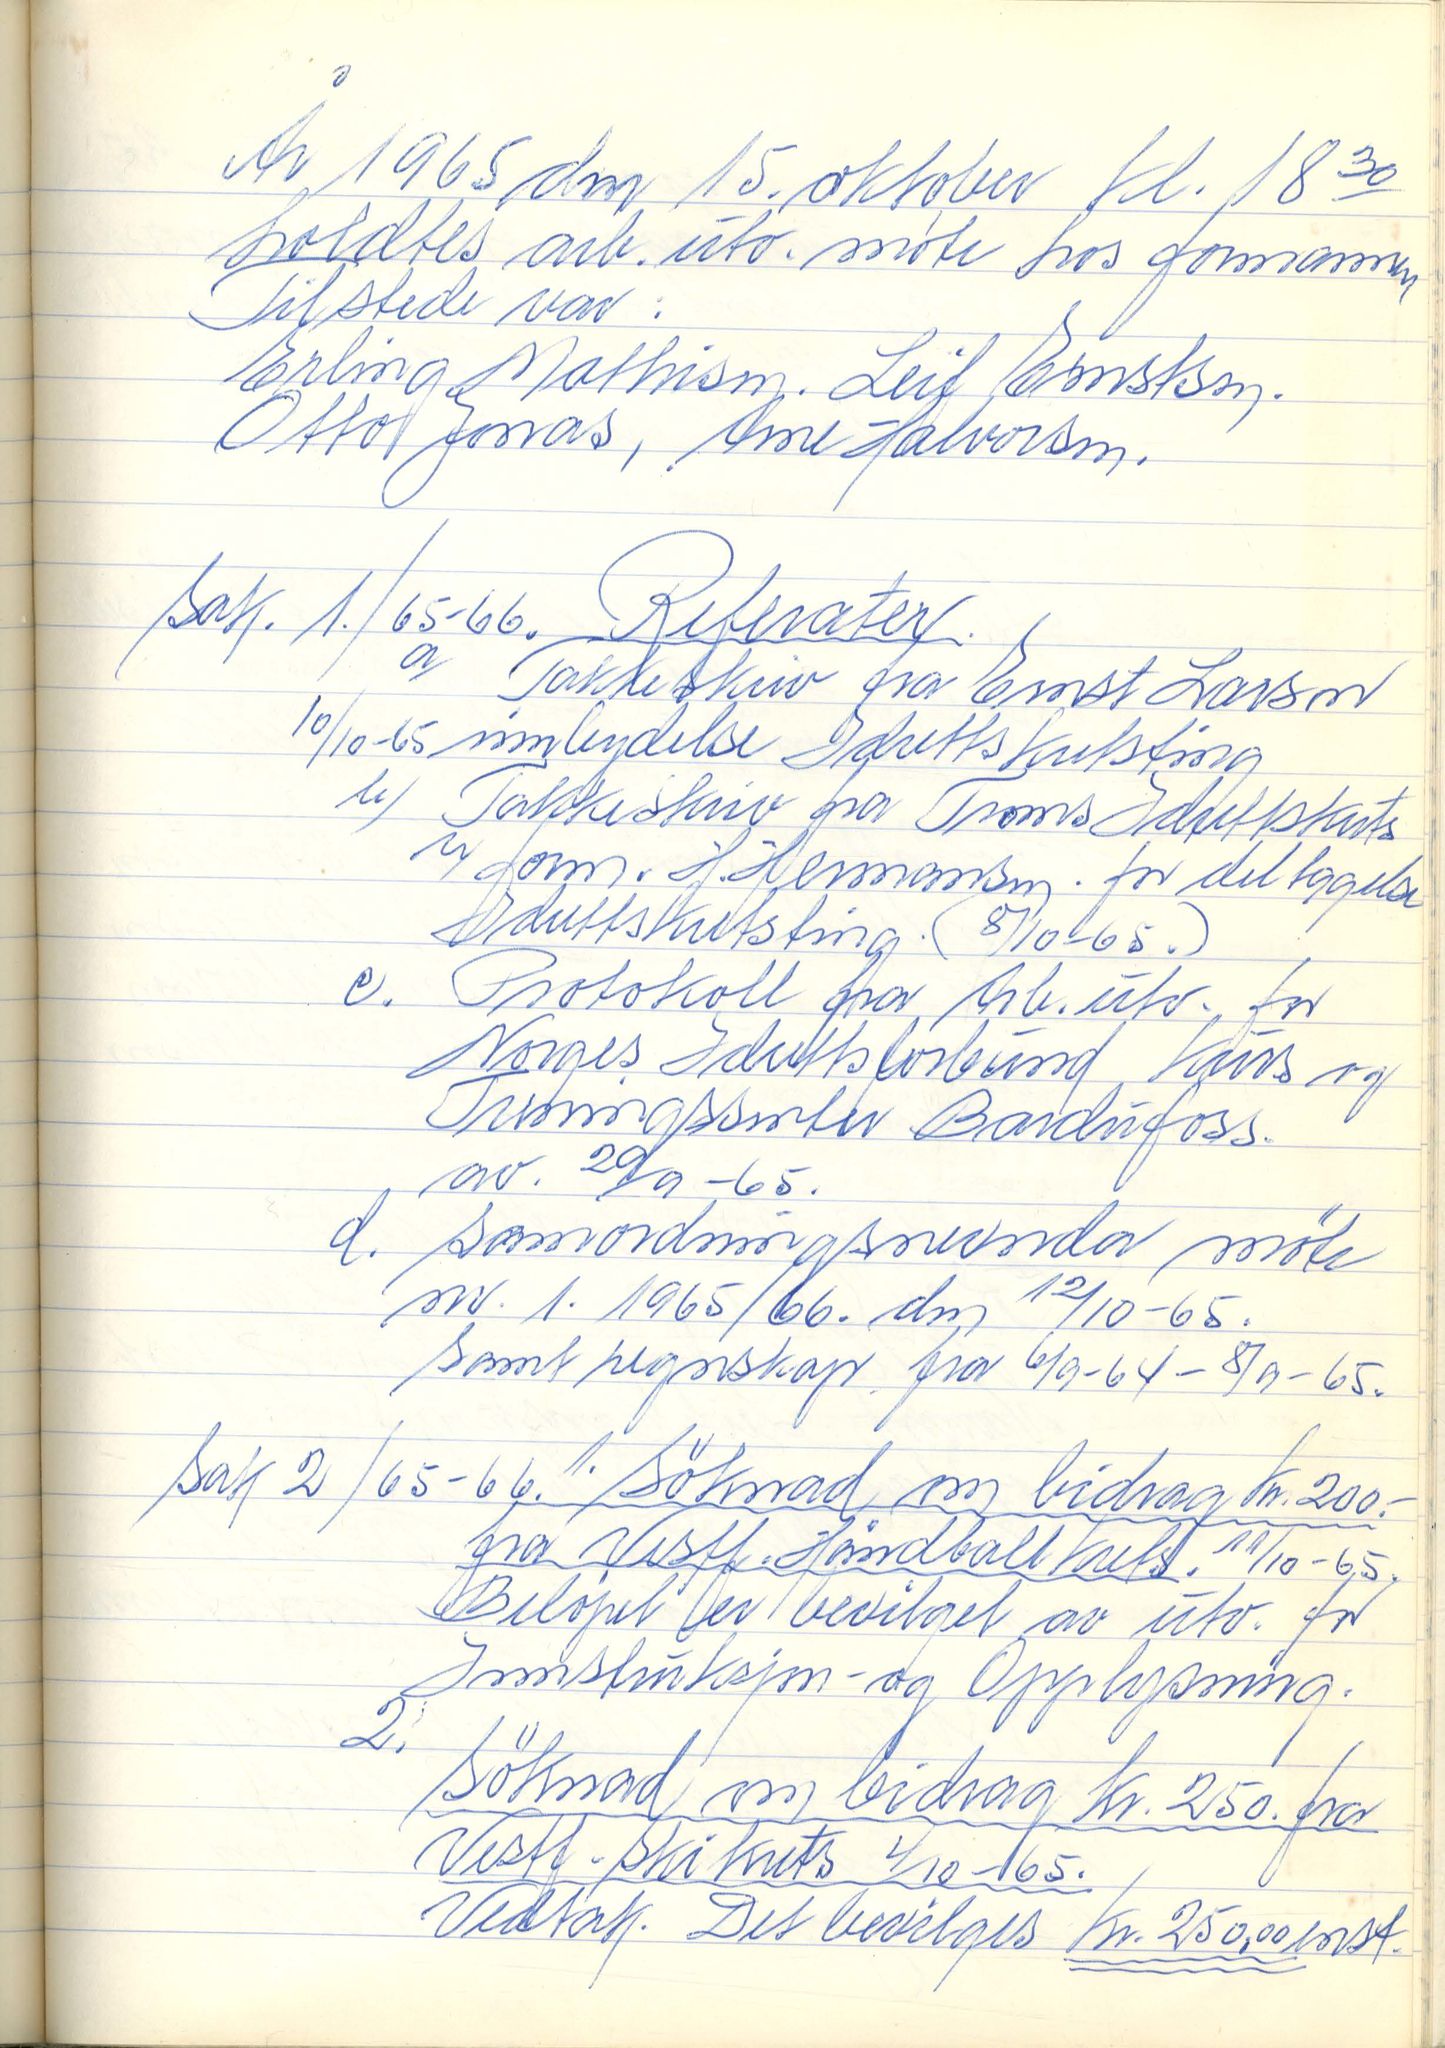 År 1965 den 15. oktober kl. 18 30
holdtes arb. utv. møte hos formannen
Tilstede var:
Erling Mathisen. Leif Ernstsen.
Otto Jonas, Arne Halvorsen.
Sak. 1./65-66. Referater.
a Takkeskriv fra Ernst Larsen
10/10-65 innbydelse Idrettskretsting
b) Takkeskriv fra Troms Idrettskrets
v/ form. H. Hermansen. for deltagelse
Idrettskretsting. (8/10-65.)
c. Protokoll fra Arb. utv. for
Norges Idrettsforbund Kurs og
Treningssenter Bardufoss.
av. 29/9-65.
d. Samordningsnevnda møte
nr. 1. 1965/66. den 12/10-65.
Samt regnskap fra 6/9-64-8/9-65.
Sak 2/65-66. 1. Söknad om bidrag kr. 200.-
fra Vestf. Håndballkrets. 11/10-65.
Beløpet er bevilget av utv. for
Instruksjon- og Opplysning.
2.
Söknad om bidrag kr. 250. fra
Vestf. Skikrets 4/10-65.
Vedtak. Det bevilges kr. 250,00 enst.